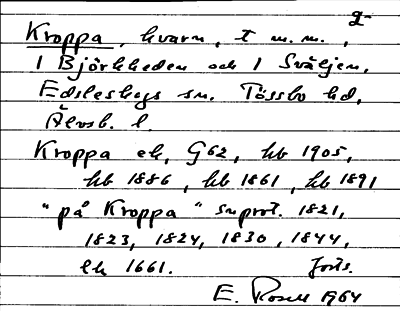 2-
Kroppa, kvarn, t m.m.,
1 Björkheden och 1 Sväljen,
Edsleskogs sn. Tössbo hd,
Älvsb. l.
Kroppa ek, G62, hb 1905,
hb 1886, hb 1861, hb 1891
"på Kroppa" snprot. 1821,
1823, 1824, 1830, 1844,
ek 1661. forts.
E. Rosell 1964